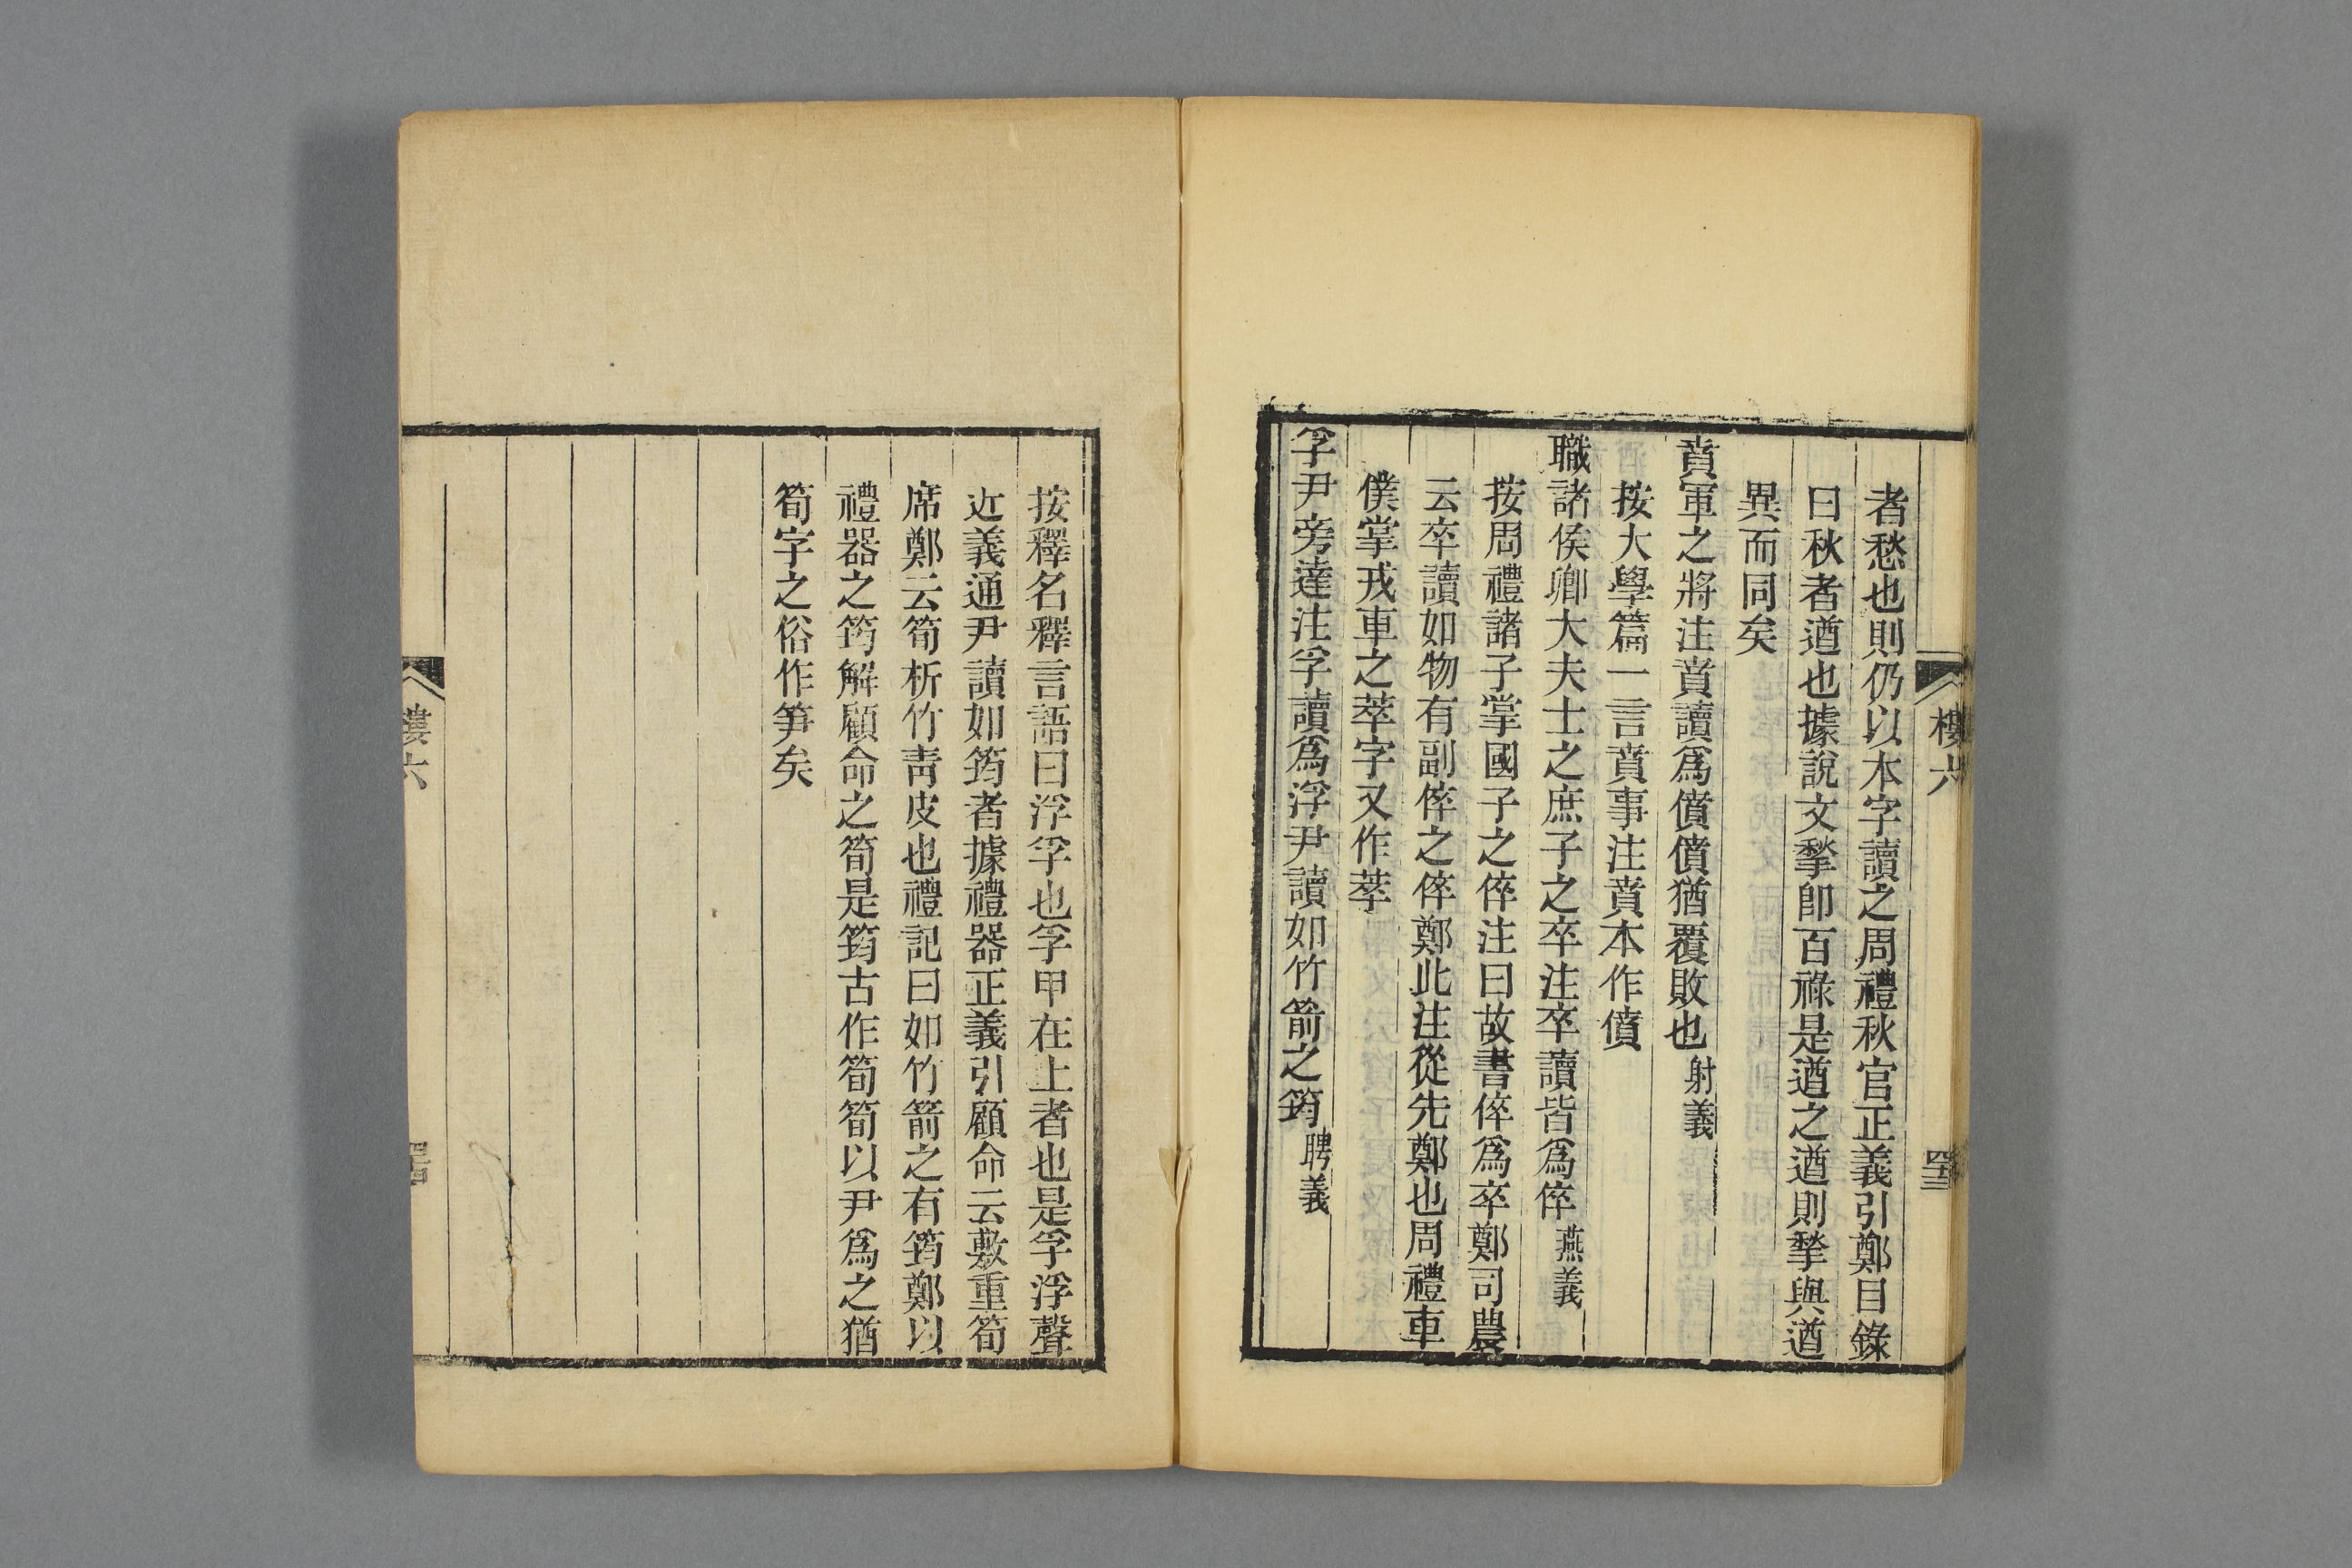 樓六
四三
者愁也則仍以本字讀之周禮秋官正義引鄭目錄
曰秋者遒也據說文揫卽百祿是遒之遒則揫與遒
異而同矣
賁軍之將注賁讀爲僨僨猶覆敗也射義
按大學篇一言賁事注賁本作僨
職諸侯卿大夫士之庶子之卒注卒讀皆爲倅燕義
按周禮諸子掌國子之倅注曰故書倅爲卒鄭司農
云卒讀如物有副倅之倅鄭此注從先鄭也周禮車
僕掌戎車之萃字又作萃
孚尹旁達注孚讀爲浮尹讀如竹箭之筠聘義
按釋名釋言語曰浮孚也孚甲在上者也是孚浮聲
近義通尹讀如筠者據禮器正義引顧命云敷重筍
席鄭云筍析竹靑皮也禮記曰如竹箭之有筠鄭以
禮器之筠解顧命之筍是筠古作筍筍以尹爲之猶
筍字之俗作笋矣
樓六